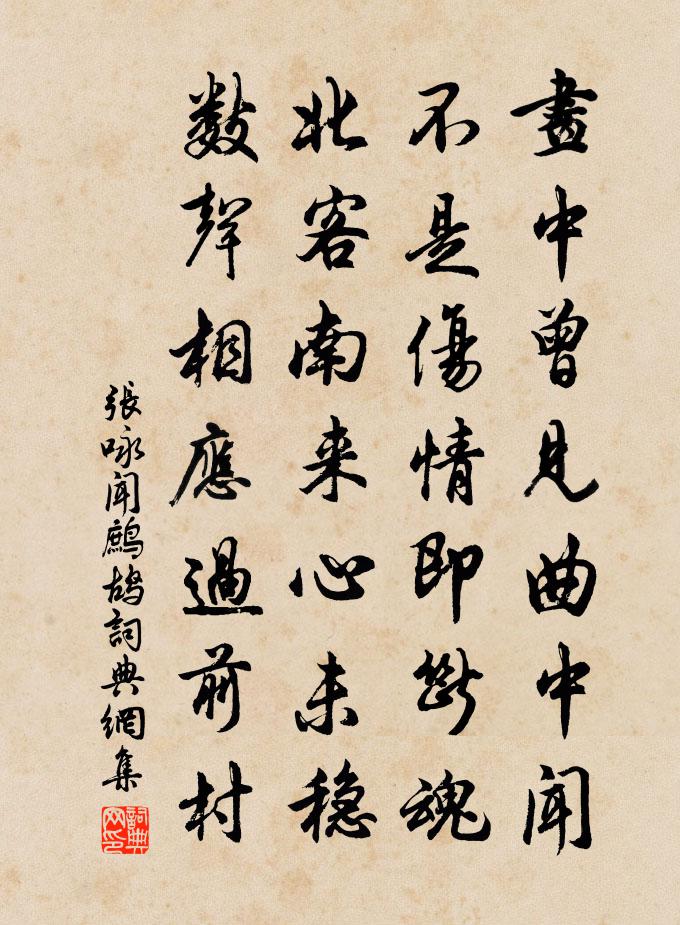 畫中曾見曲中聞
不是傷情即斷魂
北客南来心未穩
數聲相應過前村
張咏聞鷓鴣詞典網集
詞典网印